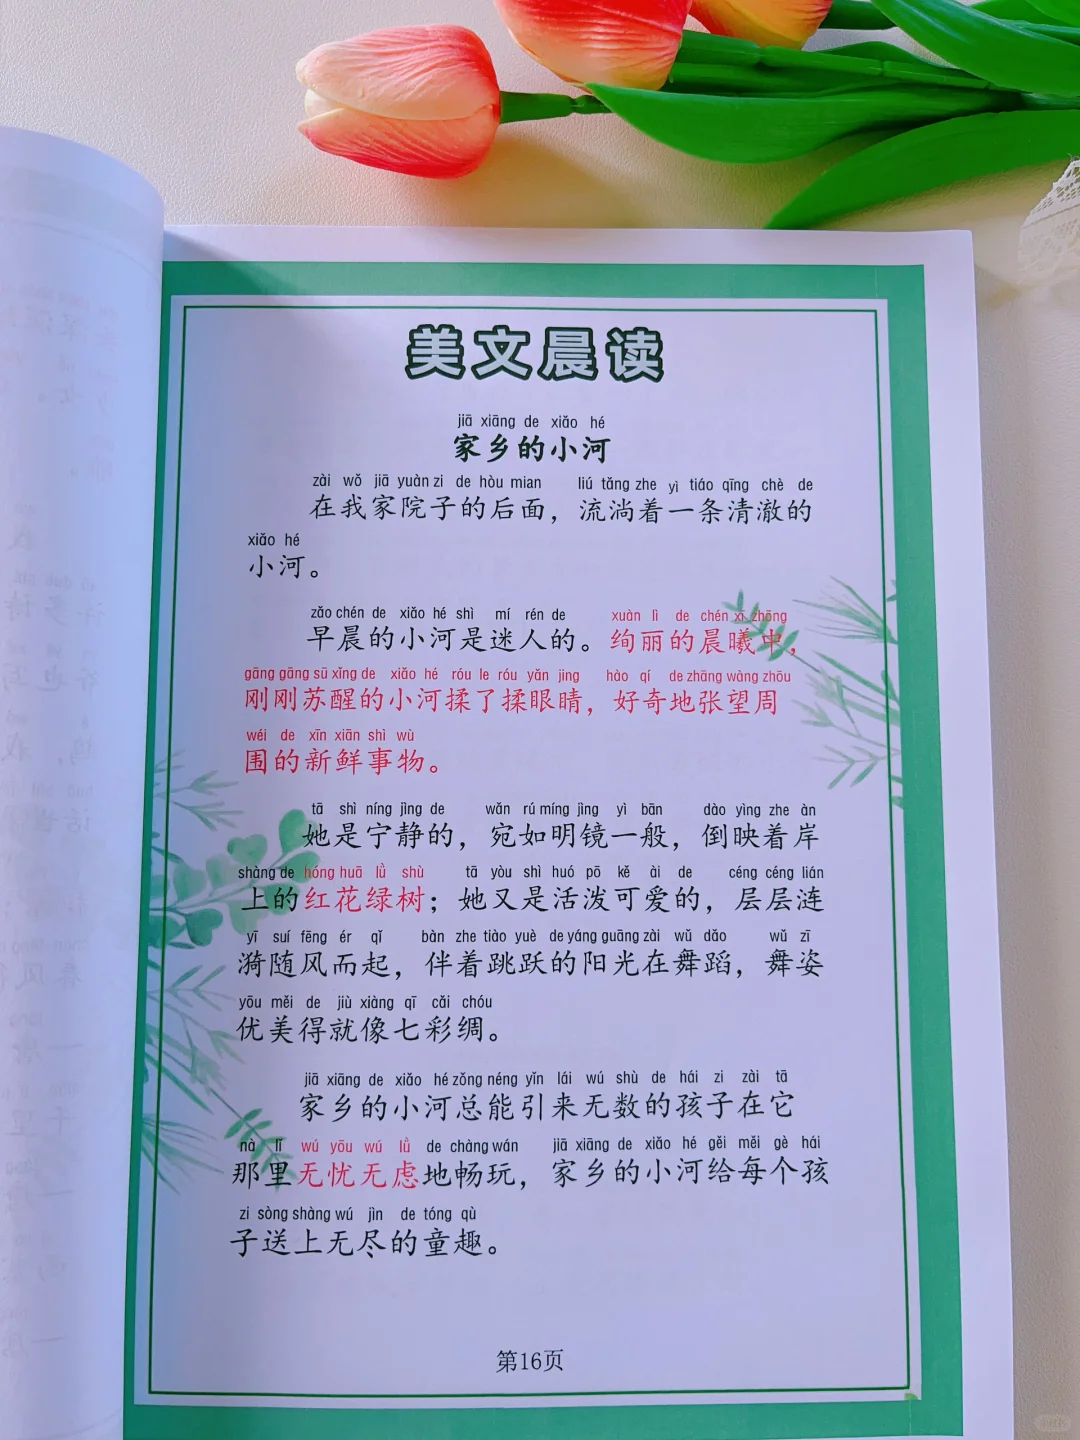 美文晨读
jiā xiāng de xiǎo hé
家乡的小河
zài wǒ jiā yuàn zi de hòu mian liú tǎng zhe yì tiáo qīng chè de
在我家院子的后面，流淌着一条清澈的
xiǎo hé
小河。
zǎo chén de xiǎo hé shì mí rén de xuàn lì de chén xī zhōng
早晨的小河是迷人的。绚丽的晨曦中，
gāng gāng sū xǐng de xiǎo hé róu le róu yǎn jing hào qí de zhāng wàng zhōu
刚刚苏醒的小河揉了揉眼睛，好奇地张望周
wéi de xīn xiān shì wù
围的新鲜事物。
tā shì níng jìng de wǎn rú míng jìng yì bān dào yìng zhe àn
她是宁静的，宛如明镜一般，倒映着岸
shàng de hóng huā lǜ shù tā yòu shì huó pō kě ài de céng céng lián
上的红花绿树；她又是活泼可爱的，层层涟
yī suí fēng ér qǐ bàn zhe tiào yuè de yáng guāng zài wǔ dǎo wǔ zī
漪随风而起，伴着跳跃的阳光在舞蹈，舞姿
yōu měi de jiù xiàng qī cǎi chóu
优美得就像七彩绸。
jiā xiāng de xiǎo hé zǒng néng yǐn lái wú shù de hái zi zài tā
家乡的小河总能引来无数的孩子在它
nà lǐ wú yōu wú lǜ de chàng wán jiā xiāng de xiǎo hé gěi měi gè hái
那里无忧无虑地畅玩，家乡的小河给每个孩
zi sòng shàng wú jìn de tóng qù
子送上无尽的童趣。
第16页